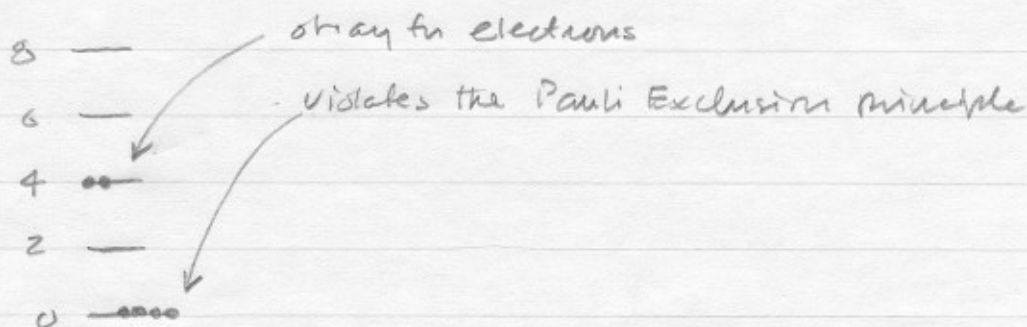 8
okay for electrons
violates the Pauli Exclusion principle
6
4
2
0